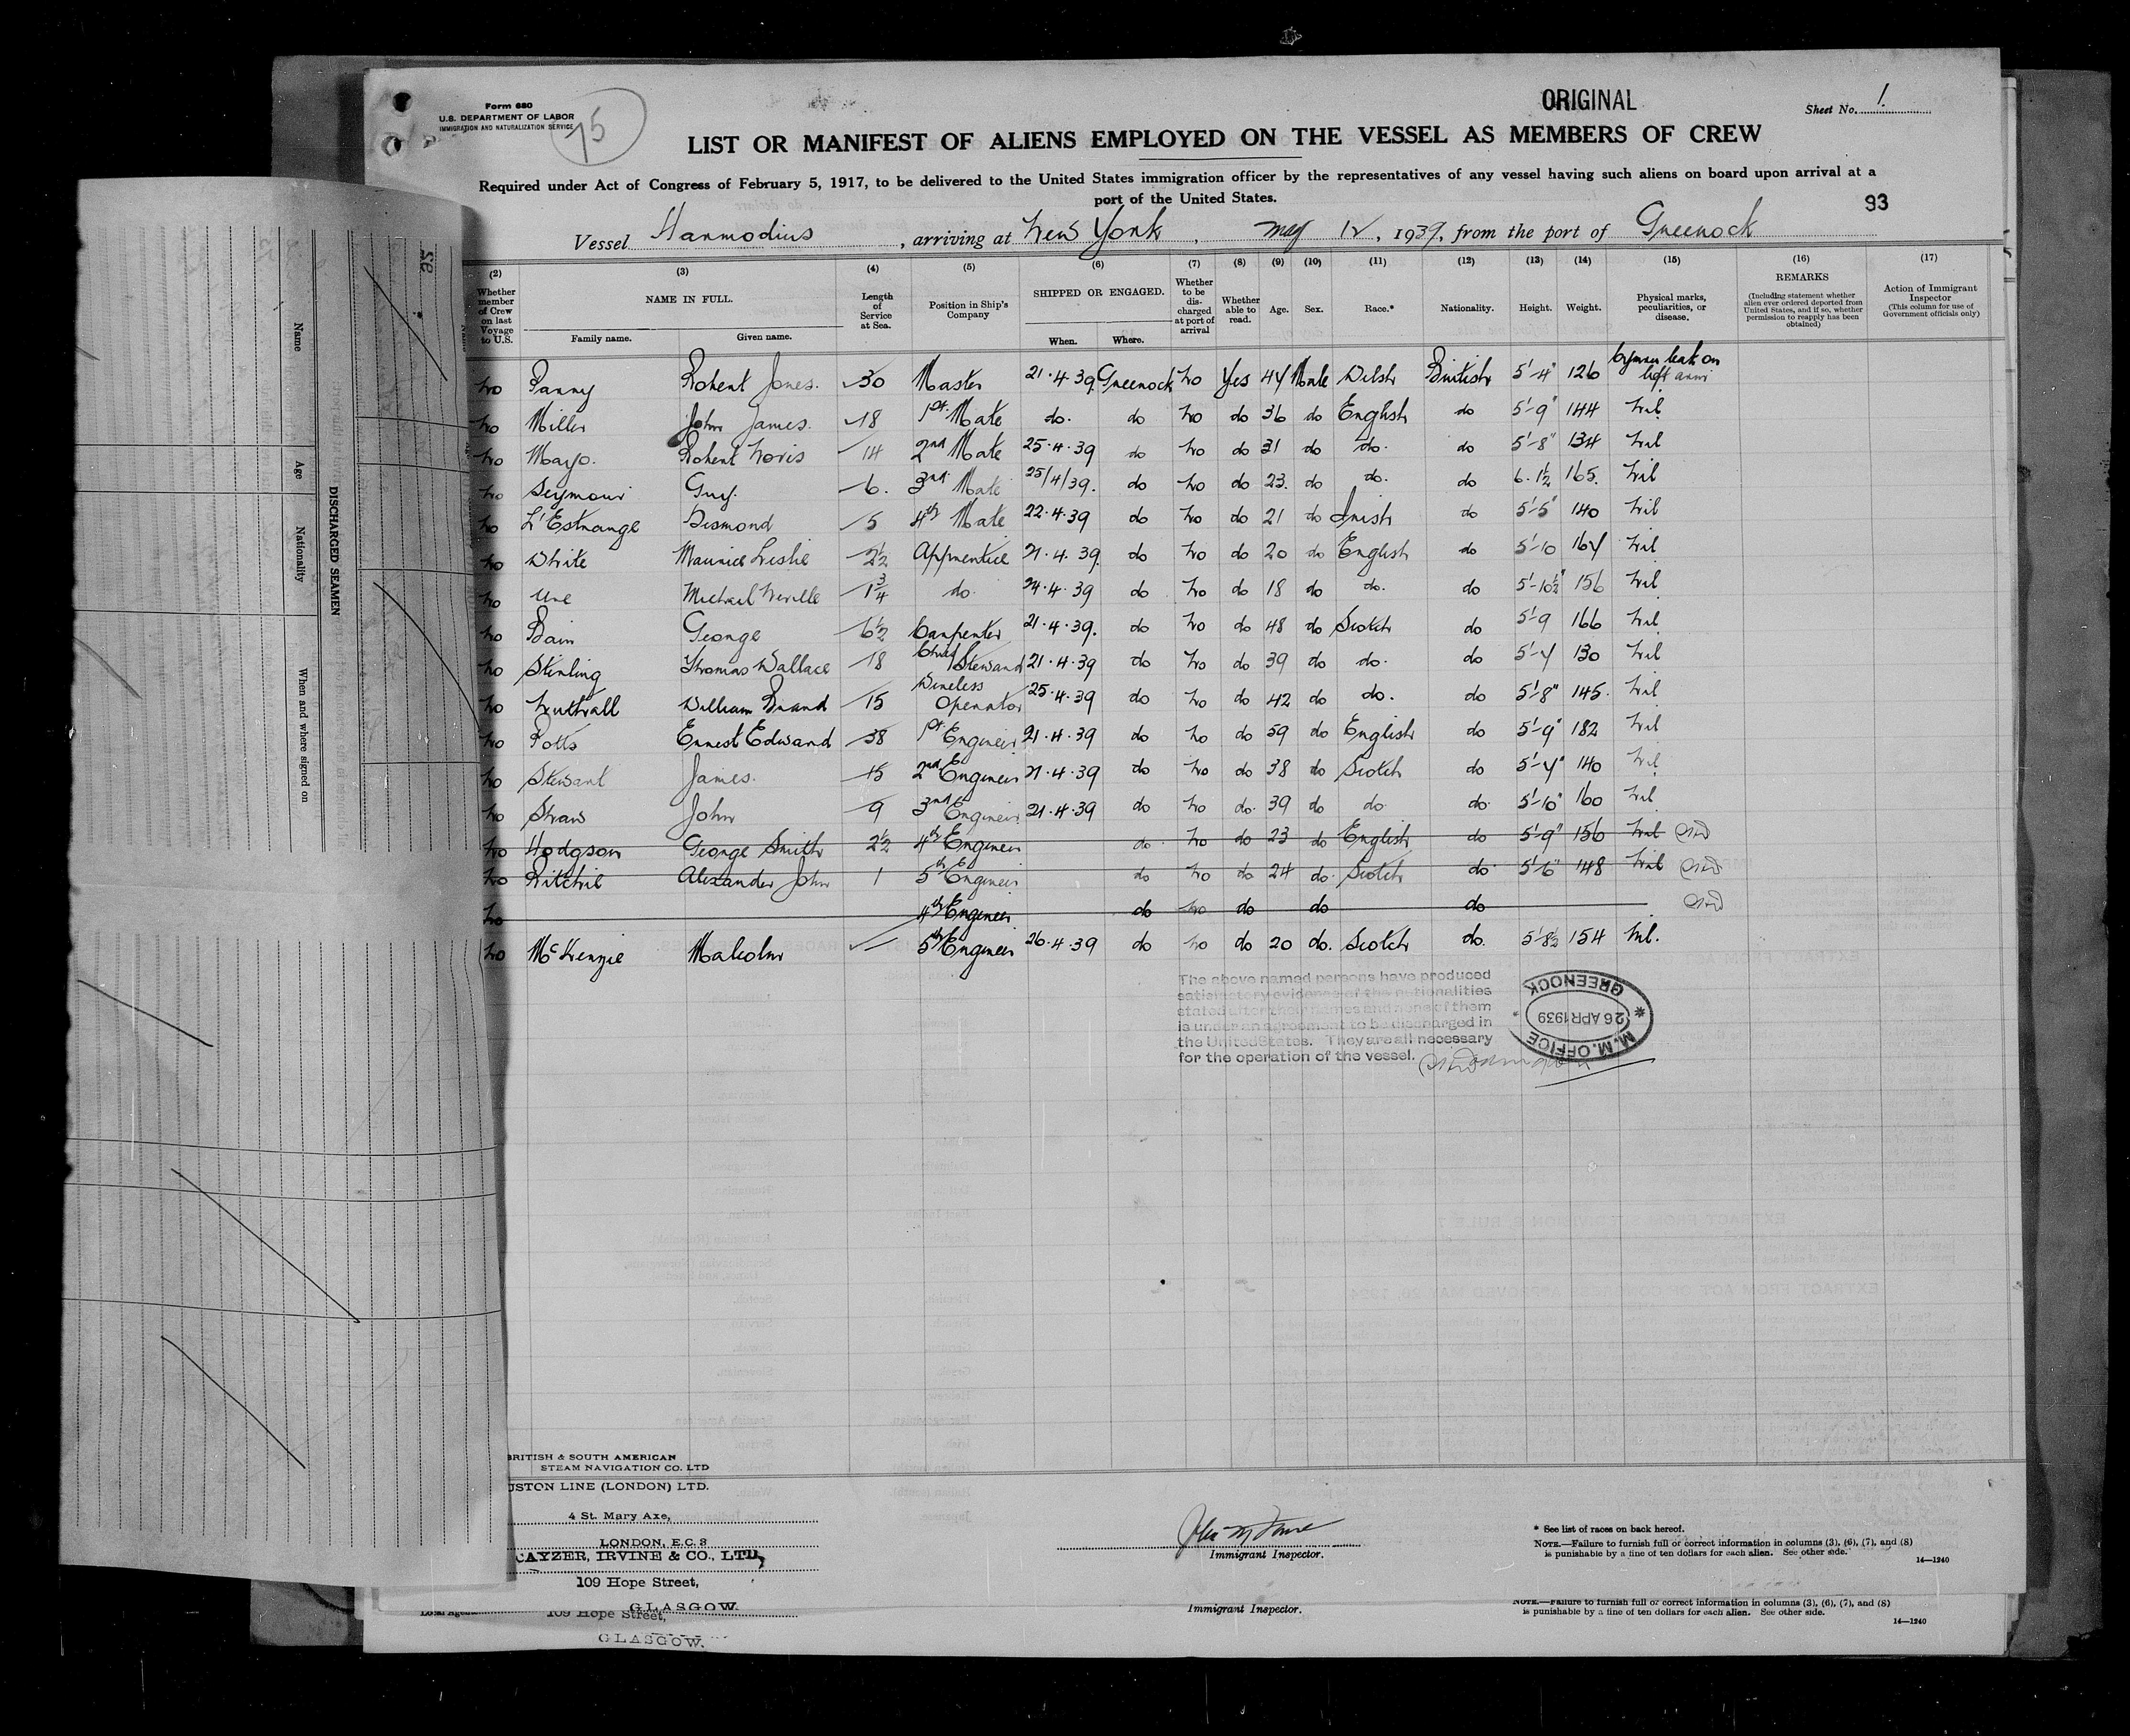 Form 680
U.S. DEPARTMENT OF LABOR
IMMIGRATION AND NATURALIZATION SERVICE
75
ORIGINAL
Sheet No. 1.
LIST OR MANIFEST OF ALIENS EMPLOYED ON THE VESSEL AS MEMBERS OF CREW
Required under Act of Congress of February 5, 1917, to be delivered to the United States immigration officer by the representatives of any vessel having such aliens on board upon arrival at a
port of the United States.
93
Vessel Harmodius, arriving at New York, May 12, 1939, from the port of Greenock
(2) (3) (4) (5) (6) (7) (8) (9) (10) (11) (12) (13) (14) (15) (16) (17)
Whether member of Crew on last Voyage to U.S. NAME IN FULL. Family name. Given name. Length of Service at Sea. Position in Ship's Company SHIPPED OR ENGAGED. When. Where. Whether to be discharged at port of arrival Whether able to read. Age. Sex. Race.* Nationality. Height. Weight. Physical marks, peculiarities, or disease. REMARKS (Including statement whether alien ever ordered deported from United States, and if so, whether permission to reapply has been obtained) Action of Immigrant Inspector (This column for use of Government officials only)
No Parry Robert Jones. 30 Master 21.4.39 Greenock No Yes 44 Male Welsh British 5'-4" 126 left arm
No Miller John James. 18 1st Mate do. do No do 36 do English do 5'-9" 144 Nil
No Mayo. Robert Noris 14 2nd Mate 25.4.39 do No do 31 do do. do 5'-8" 134 Nil
No Seymour Guy. 6. 3rd Mate 25/4/39. do No do 23. do do. do 6.1½ 165. Nil
No L'Estrange Desmond 5 4th Mate 22.4.39 do No do 21 do Irish do 5'-5" 140 Nil
No White Maurice Leslie 2½ Apprentice 21.4.39. do No do 20 do English do 5'-10 164 Nil
No Ure Michael Neville 1¾ do. 24.4.39 do No do 18 do do. do 5'-10½" 156 Nil
No Bain George 6½ Carpenter 21.4.39. do No do 48 do Scotch do 5'-9 166 Nil
No Stirling Thomas Wallace 18 Chief Steward 21.4.39 do No do 39 do do. do 5'-4 130 Nil
No William Brand 15 Wireless Operator 25.4.39 do No do 42 do do. do 5'-8" 145. Nil
No Potts Ernest Edward 38 1st Engineer 21.4.39 do No do 59 do English do 5'-9" 182 Nil
No Stewart James. 15 2nd Engineer 21.4.39 do No do 38 do Scotch do 5'-4" 140 Nil
No Shaw John 9 3rd Engineer 21.4.39 do No do. 39 do do do. 5'-10" 160 Nil
No Hodgson George Smith 2½ 4th Engineer do. No do 23 do English do 5'-9" 156 Nil
No Ritchie Alexander John 1 5th Engineer do No do 24 do. Scotch do. 5'-6" 148 Nil
No 4th Engineer do No do do do
No McKenzie Malcolm 5th Engineer 26.4.39 do No do 20 do. Scotch do. 5'8½ 154 Nil.
The above named persons have produced
satisfactory evidence of the nationalities
stated after their names and none of them
is under an agreement to be discharged in
the United States. They are all necessary
for the operation of the vessel.
M.M. OFFICE
26 APR 1939
GREENOCK
Name
Age
Nationality
When and where signed on
DISCHARGED SEAMEN
BRITISH & SOUTH AMERICAN
STEAM NAVIGATION CO. LTD
USTON LINE (LONDON) LTD.
4 St. Mary Axe,
LONDON, E.C. 3
CAYZER, IRVINE & CO., LTD,
109 Hope Street,
GLASGOW.
Immigrant Inspector.
* See list of races on back hereof.
NOTE.—Failure to furnish full or correct information in columns (3), (6), (7), and (8)
is punishable by a fine of ten dollars for each alien. See other side.
14—1240
109 Hope Street,
GLASGOW.
Immigrant Inspector.
NOTE.—Failure to furnish full or correct information in columns (3), (6), (7), and (8)
is punishable by a fine of ten dollars for each alien. See other side.
14—1240